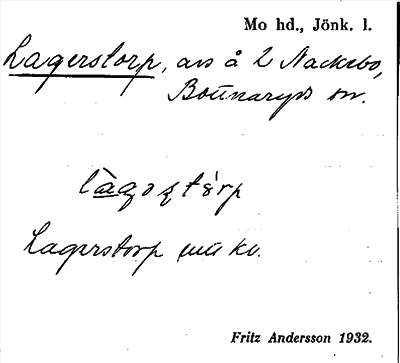 Mo hd., Jönk. l.
Lagerstorp, avs å 2 Nackebo,
Bottnaryds sn.
Lagerstorp mtl kv.
Fritz Andersson 1932.